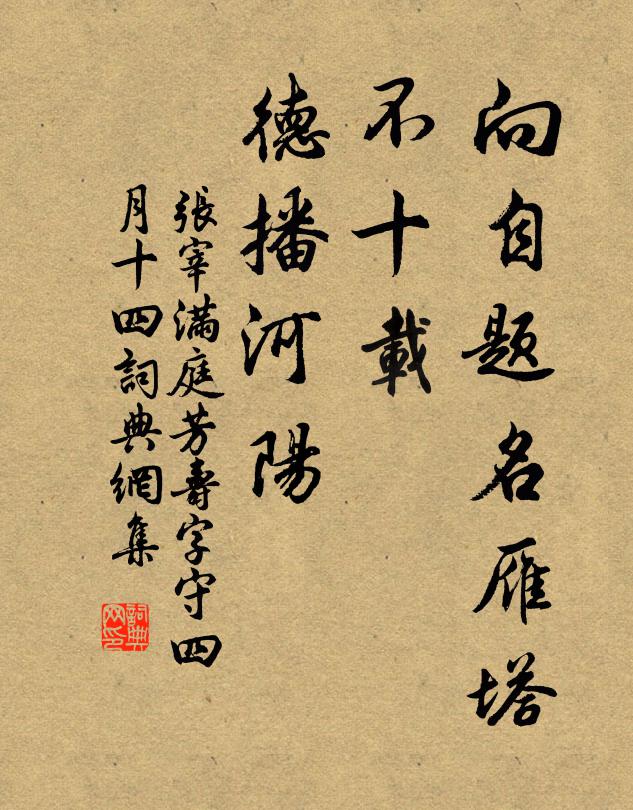 向自题名雁塔
不十載
德播河陽
張宰满庭芳壽字守四
月十四詞典網集
詞典
网印